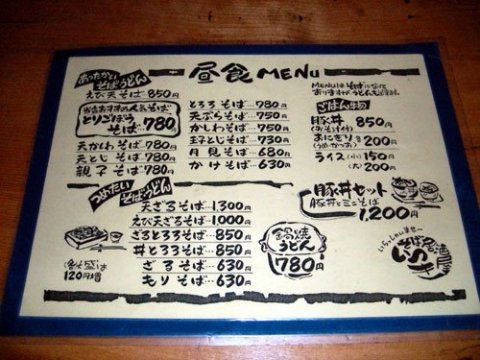 昼食 MENU
あったかい そば・うどん
えび天そば…850円
当店おすすめの人気そば
とりごぼう
そば…780円
天かわそば…780円
天とじそば…780円
親子そば…780円
とろろそば…780円
天ぷらそば…750円
かしわそば…750円
玉子とじそば…730円
月見そば…680円
かけそば…630円
MENUは そばになって
おりますが うどんも
ごはん物
豚丼 850円
(みそ汁付)
おにぎり 200円
(うめ・かつお)
ライス (小) 150円
(大) 200円
つめたい そば・うどん
天ざるそば…1,300円
えび天ざるそば…1,000円
ざるとろろそば…850円
丼とろろそば…850円
ざるそば…630円
もりそば…630円
盛は
120円増
鍋焼
うどん
780円
豚丼セット
豚丼とミニそば
1,200円
いらっしゃいませ
そば処